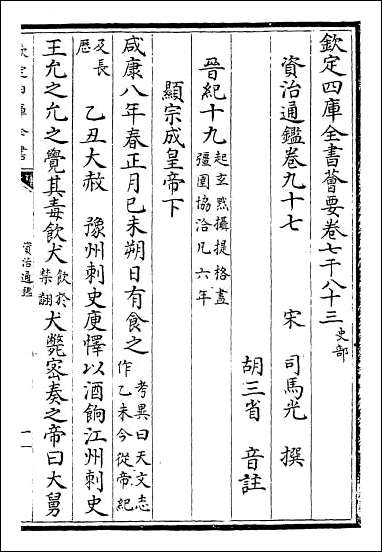 欽定四庫全書薈要卷七千八十三 史部
資治通鑑卷九十七 宋 司馬光 撰
胡三省 音註
晉紀十九 起玄黓攝提格盡
彊圉協洽凡六年
顯宗成皇帝下
咸康八年春正月己未朔日有食之 考異曰天文志
作乙未今從帝紀
及長
歷 乙丑大赦 豫州刺史庾懌以酒餉江州刺史
王允之允之覺其毒飲犬 飲於
禁翻 犬斃密奏之帝曰大舅
欽定四庫全書
資治通鑑
一